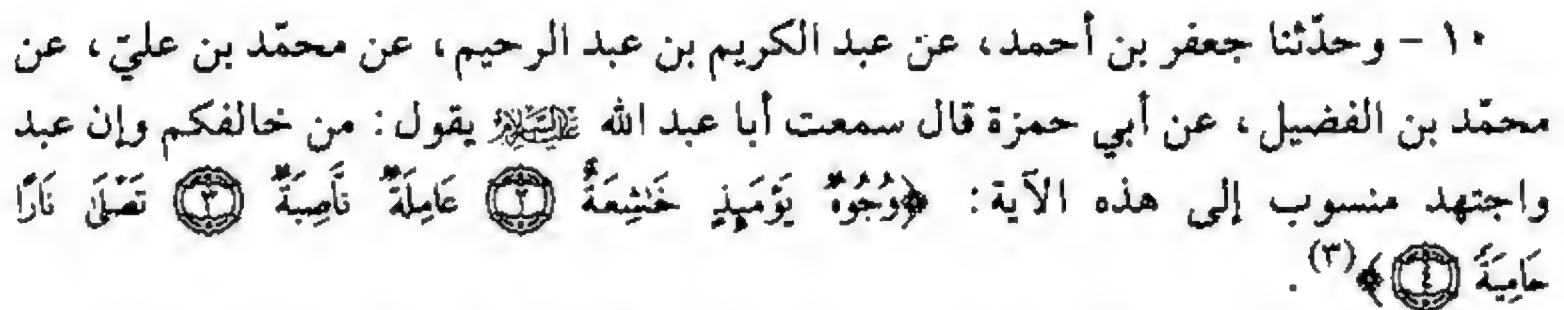 ١٠ - وحدّثنا جعفر بن أحمد، عن عبد الكريم بن عبد الرحيم، عن محمّد بن عليّ، عن
محمّد بن الفضيل، عن أبي حمزة قال سمعت أبا عبد الله عَلَيْهِ السَّلَامُ يقول: من خالفكم وإن عبد
واجتهد منسوب إلى هذه الآية: ﴿وُجُوهٌ يَوْمَئِذٍ خَاشِعَةٌ ٢ عَامِلَةٌ نَّاصِبَةٌ ٣ تَصْلَىٰ نَارًا
حَامِيَةً ٤﴾(٣).